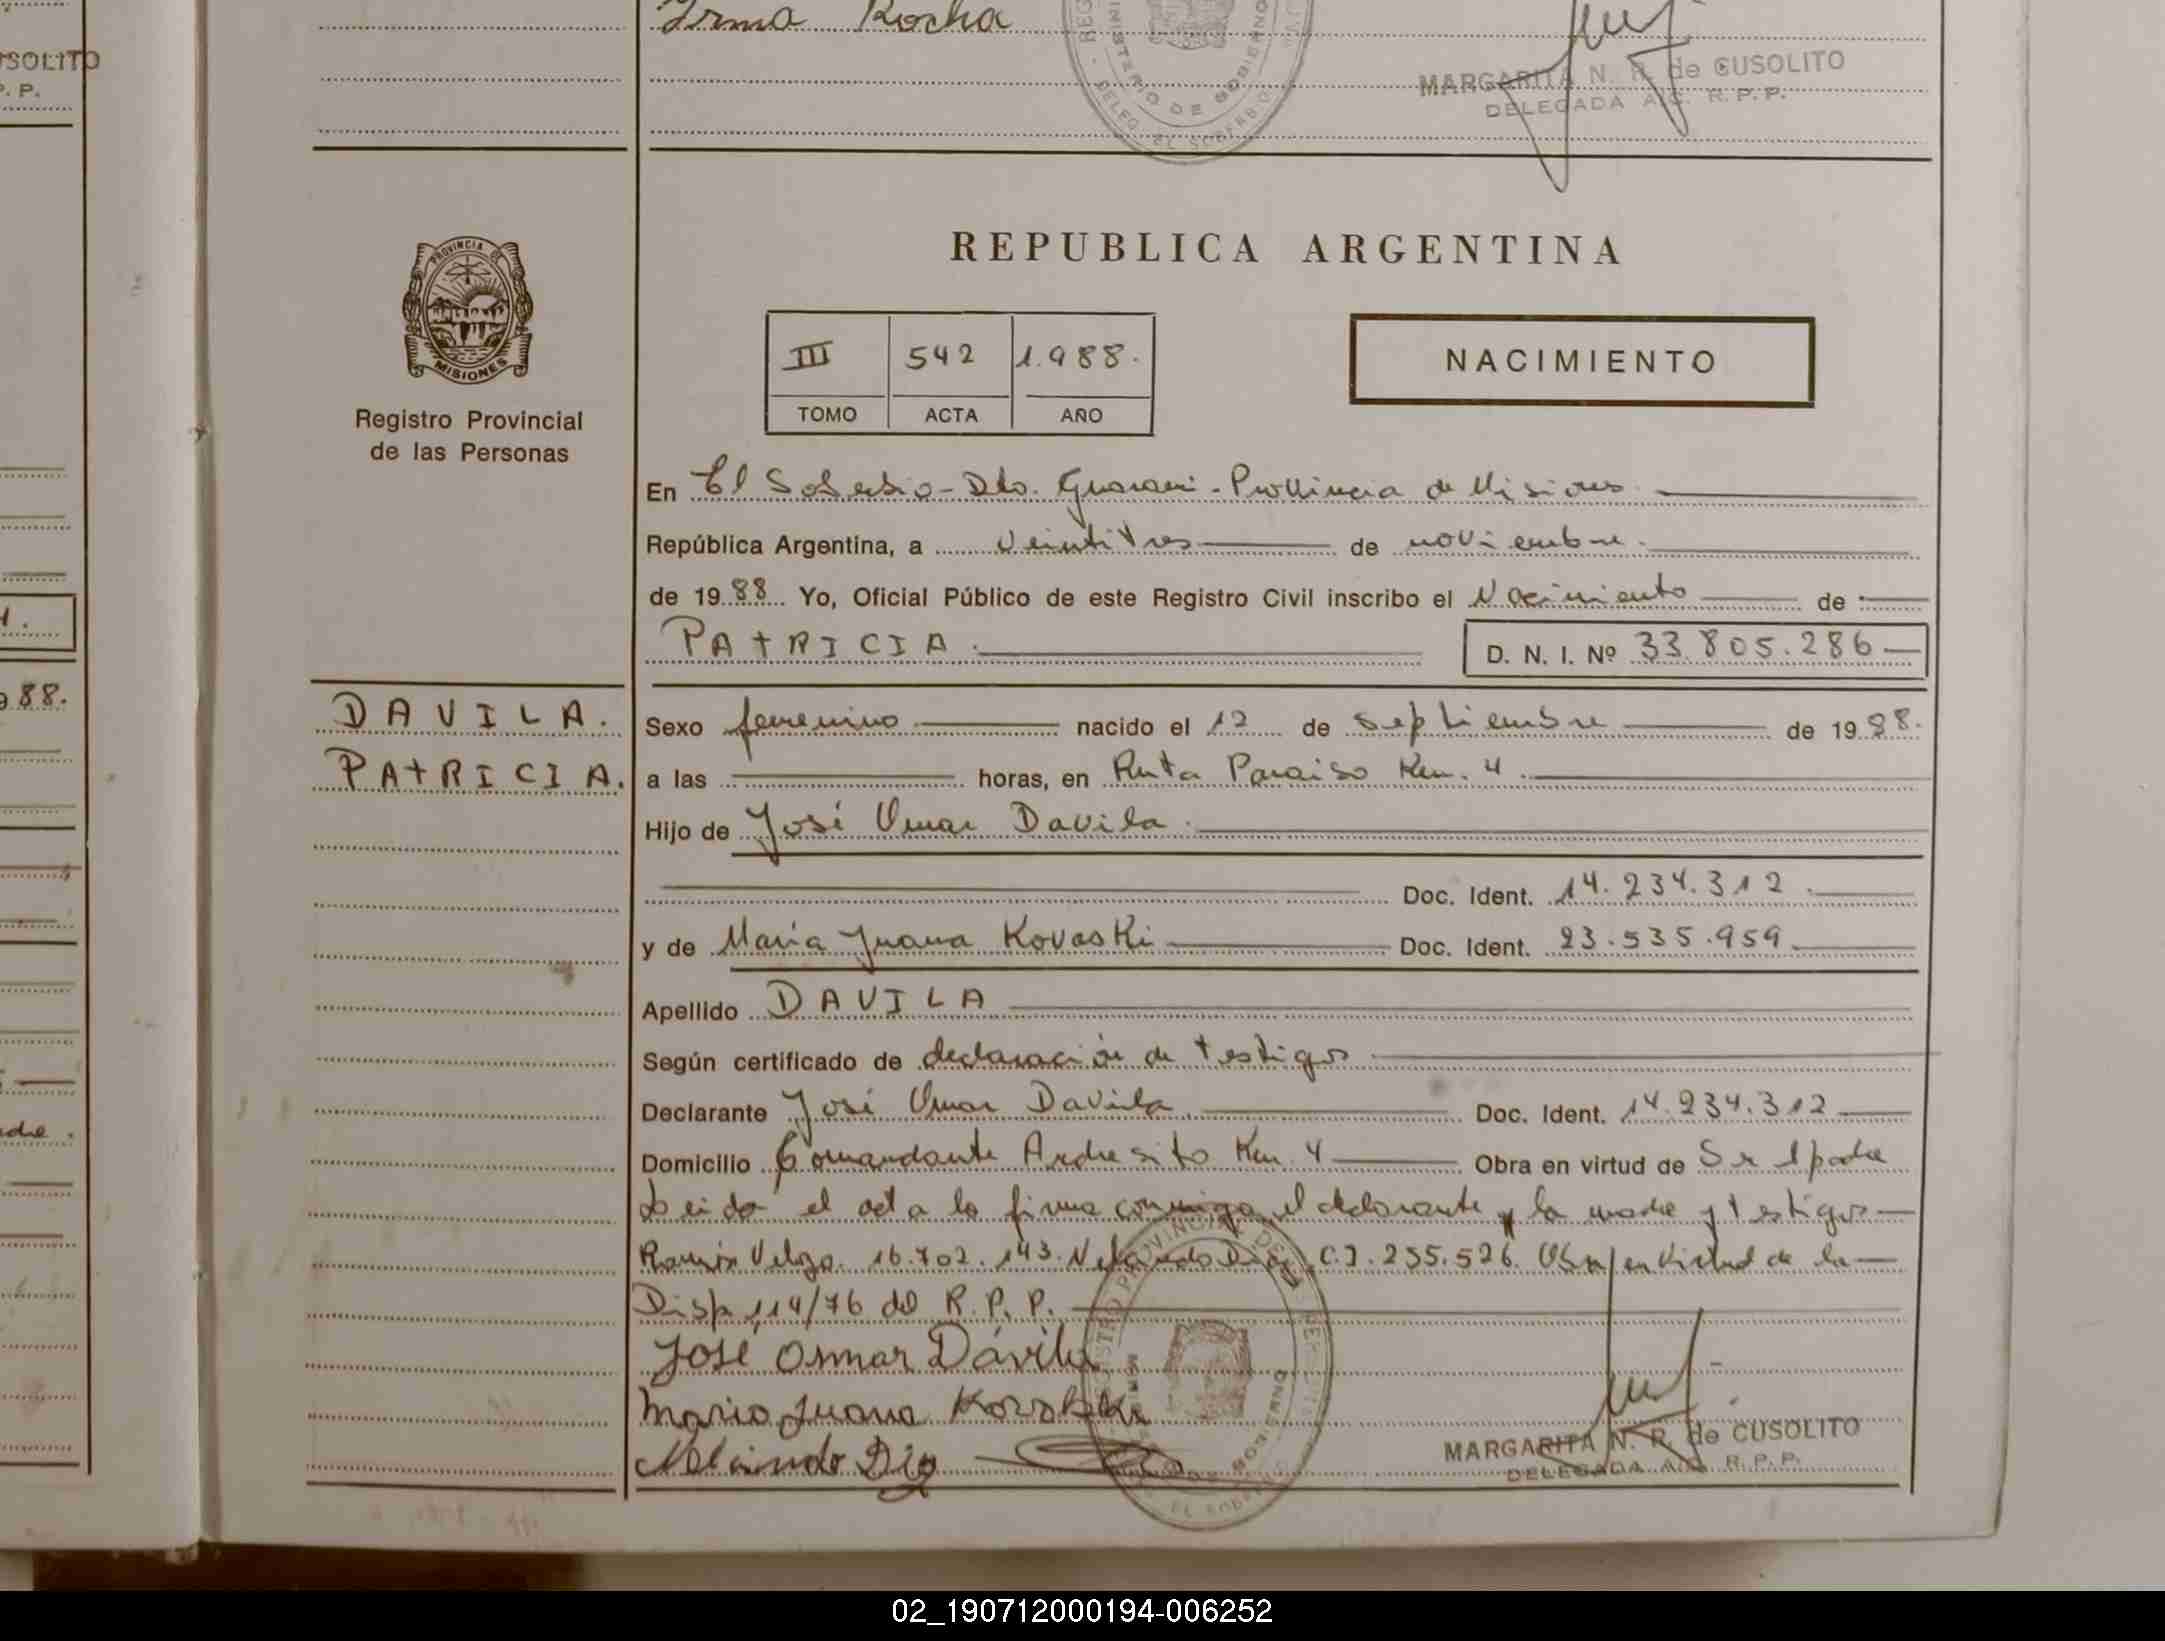 Irma Rocha
SOLITO
P. P.
MINISTERIO DE GOBIERNO
DELEG. EL SOBERBIO
MARGARITA N. R. de CUSOLITO
DELEGADA A/C. R. P. P.
PROVINCIA DE
MISIONES
Registro Provincial
de las Personas
REPUBLICA ARGENTINA
III 542 1.988.
TOMO ACTA AÑO
NACIMIENTO
En El Soberbio - Dto. Guarani - Provincia de Misiones
República Argentina, a veintitres de noviembre.
de 1988 Yo, Oficial Público de este Registro Civil inscribo el Nacimiento de
PATRICIA. D. N. I. Nº 33.805.286
88.
DAVILA.
PATRICIA.
Sexo femenino nacido el 12 de septiembre de 1988.
a las horas, en Ruta Paraiso Km. 4.
Hijo de José Omar Davila.
Doc. Ident. 14.234.312.
y de María Juana Kovaski Doc. Ident. 23.535.959.
Apellido DAVILA
Según certificado de declaración de testigos
Declarante José Omar Davila. Doc. Ident. 14.234.312
Domicilio Comandante Andresito Km. 4 Obra en virtud de Ser el padre
Leida el acta la firma conmigo el declarante y la madre y testigos
Ramón Veloza. 16.702.143. C.I. 255.526. Obra en virtud de la
Disp. 114/76 del R. P. P.
José Osmar Dávila
Maria Juana
MARGARITA N. R. de CUSOLITO
DELEGADA A/C. R. P. P.
02_190712000194-006252